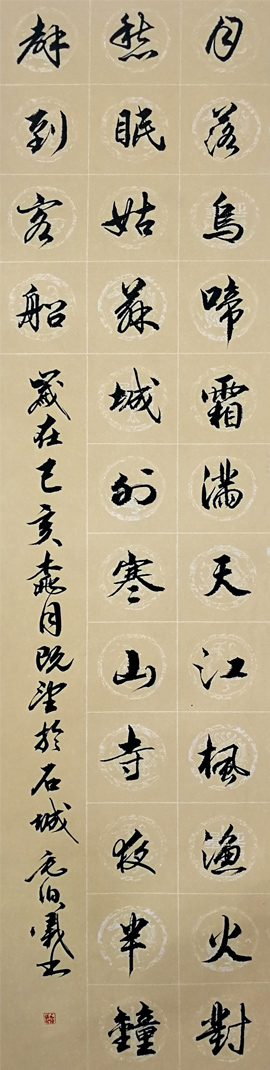 月落烏啼霜滿天江楓漁火對
愁眠姑蘇城外寒山寺夜半鐘
聲到客船
歲在己亥月既望於石城伯書